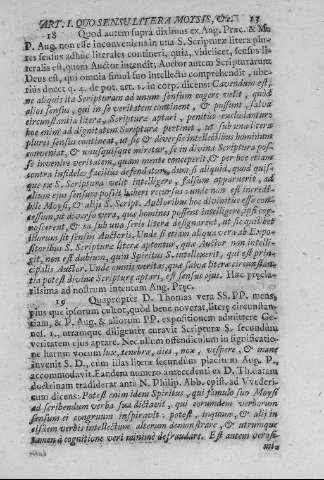 ART. I. QUO SENSU LITERA MOYSIS, &c. 13
18 Quod autem supra diximus ex Ang. Præc. & Mo
P. Aug. non esse inconveniens in una S. Scripturæ litera plu-
res sensus adhuc literales contineri, quia, videlicet, sensus li-
teralis est, quem Auctor intendit, Auctor autem Scripturarum
Deus est, qui omnia simul suo intellectu comprehendit, ube-
rius docet q. 4. de pot. art. 1. in corp. dicens: Cavendum est,
ne aliquis ita Scripturam ad unum sensum cogere velit, quod
alios sensus, qui in se veritatem continent, & possunt, salva
circumstantia literæ, Scripturæ aptari, penitus excludantur
hoc enim ad dignitatem Scripturæ pertinet, ut sub una litera
plures sensus contineat, ut sic & diversis intellectibus hominum
conveniat, & unusquisque miretur, se in divina Scriptura pos-
se invenire veritatem, quam mente conceperit, & per hoc etiam
contra infideles facilius defendatur, dum si aliquid, quod quis-
que ex S. Scriptura velit intelligere, falsum apparuerit, ad
alium ejus sensum possit haberi recursus: unde non est incredi-
bile Moysi, & aliis S. Script. Auctoribus hoc divinitus esse con-
cessum, ut diversa vera, quæ homines possent intelligere, ipsi cog-
noscerent, & ea sub una serie literæ designarent, ut sic quilibet
illorum sit sensus Auctoris. Unde si etiam aliqua vera ab Expo-
sitoribus S. Scripturæ literæ aptentur, quæ Auctor non intelli-
git, non est dubium, quin Spiritus S. intellexerit, qui est prin-
cipalis Auctor. Unde omnis veritas, quæ salva literæ circumstan-
tia potest divinæ Scripturæ aptari, est sensus ejus. Hæc præcla-
rissima ad nostrum intentum Ang. Præc.
19 Quapropter D. Thomas vera SS. PP. mens,
plus quæ ipsorum cultor, quod bene noverat, literæ circumstan-
tiam, & P. Aug. & aliorum PP. expositionem admittere Ge-
nes. 1., utramque diligenter curavit Scripturæ S. secundum
veritatem ejus aptare. Nec ullum offendiculum in significatione
harum vocum lux, tenebræ, dies, nox, vespere, & mane
invenit S. D., cum illas litera secundum placitum Aug. P.,
accommodavit. Eandem numero antecedenti ex D. Thoma
doctrinam tradiderat ante N. Philip. Abb. epist. ad Vvederi-
cum dicens: Potest enim idem Spiritus, qui famulo suo Moysi
ad scribendum verba sua dictavit, qui eorumdem verborum
sensum ei congruum inspiravit; potest, inquam, & alii in
eisdem verbis intellectum alterum demonstrare, & utrumque
tamen à cognitione veri minimè defraudare. Est autem verosi-
mi-